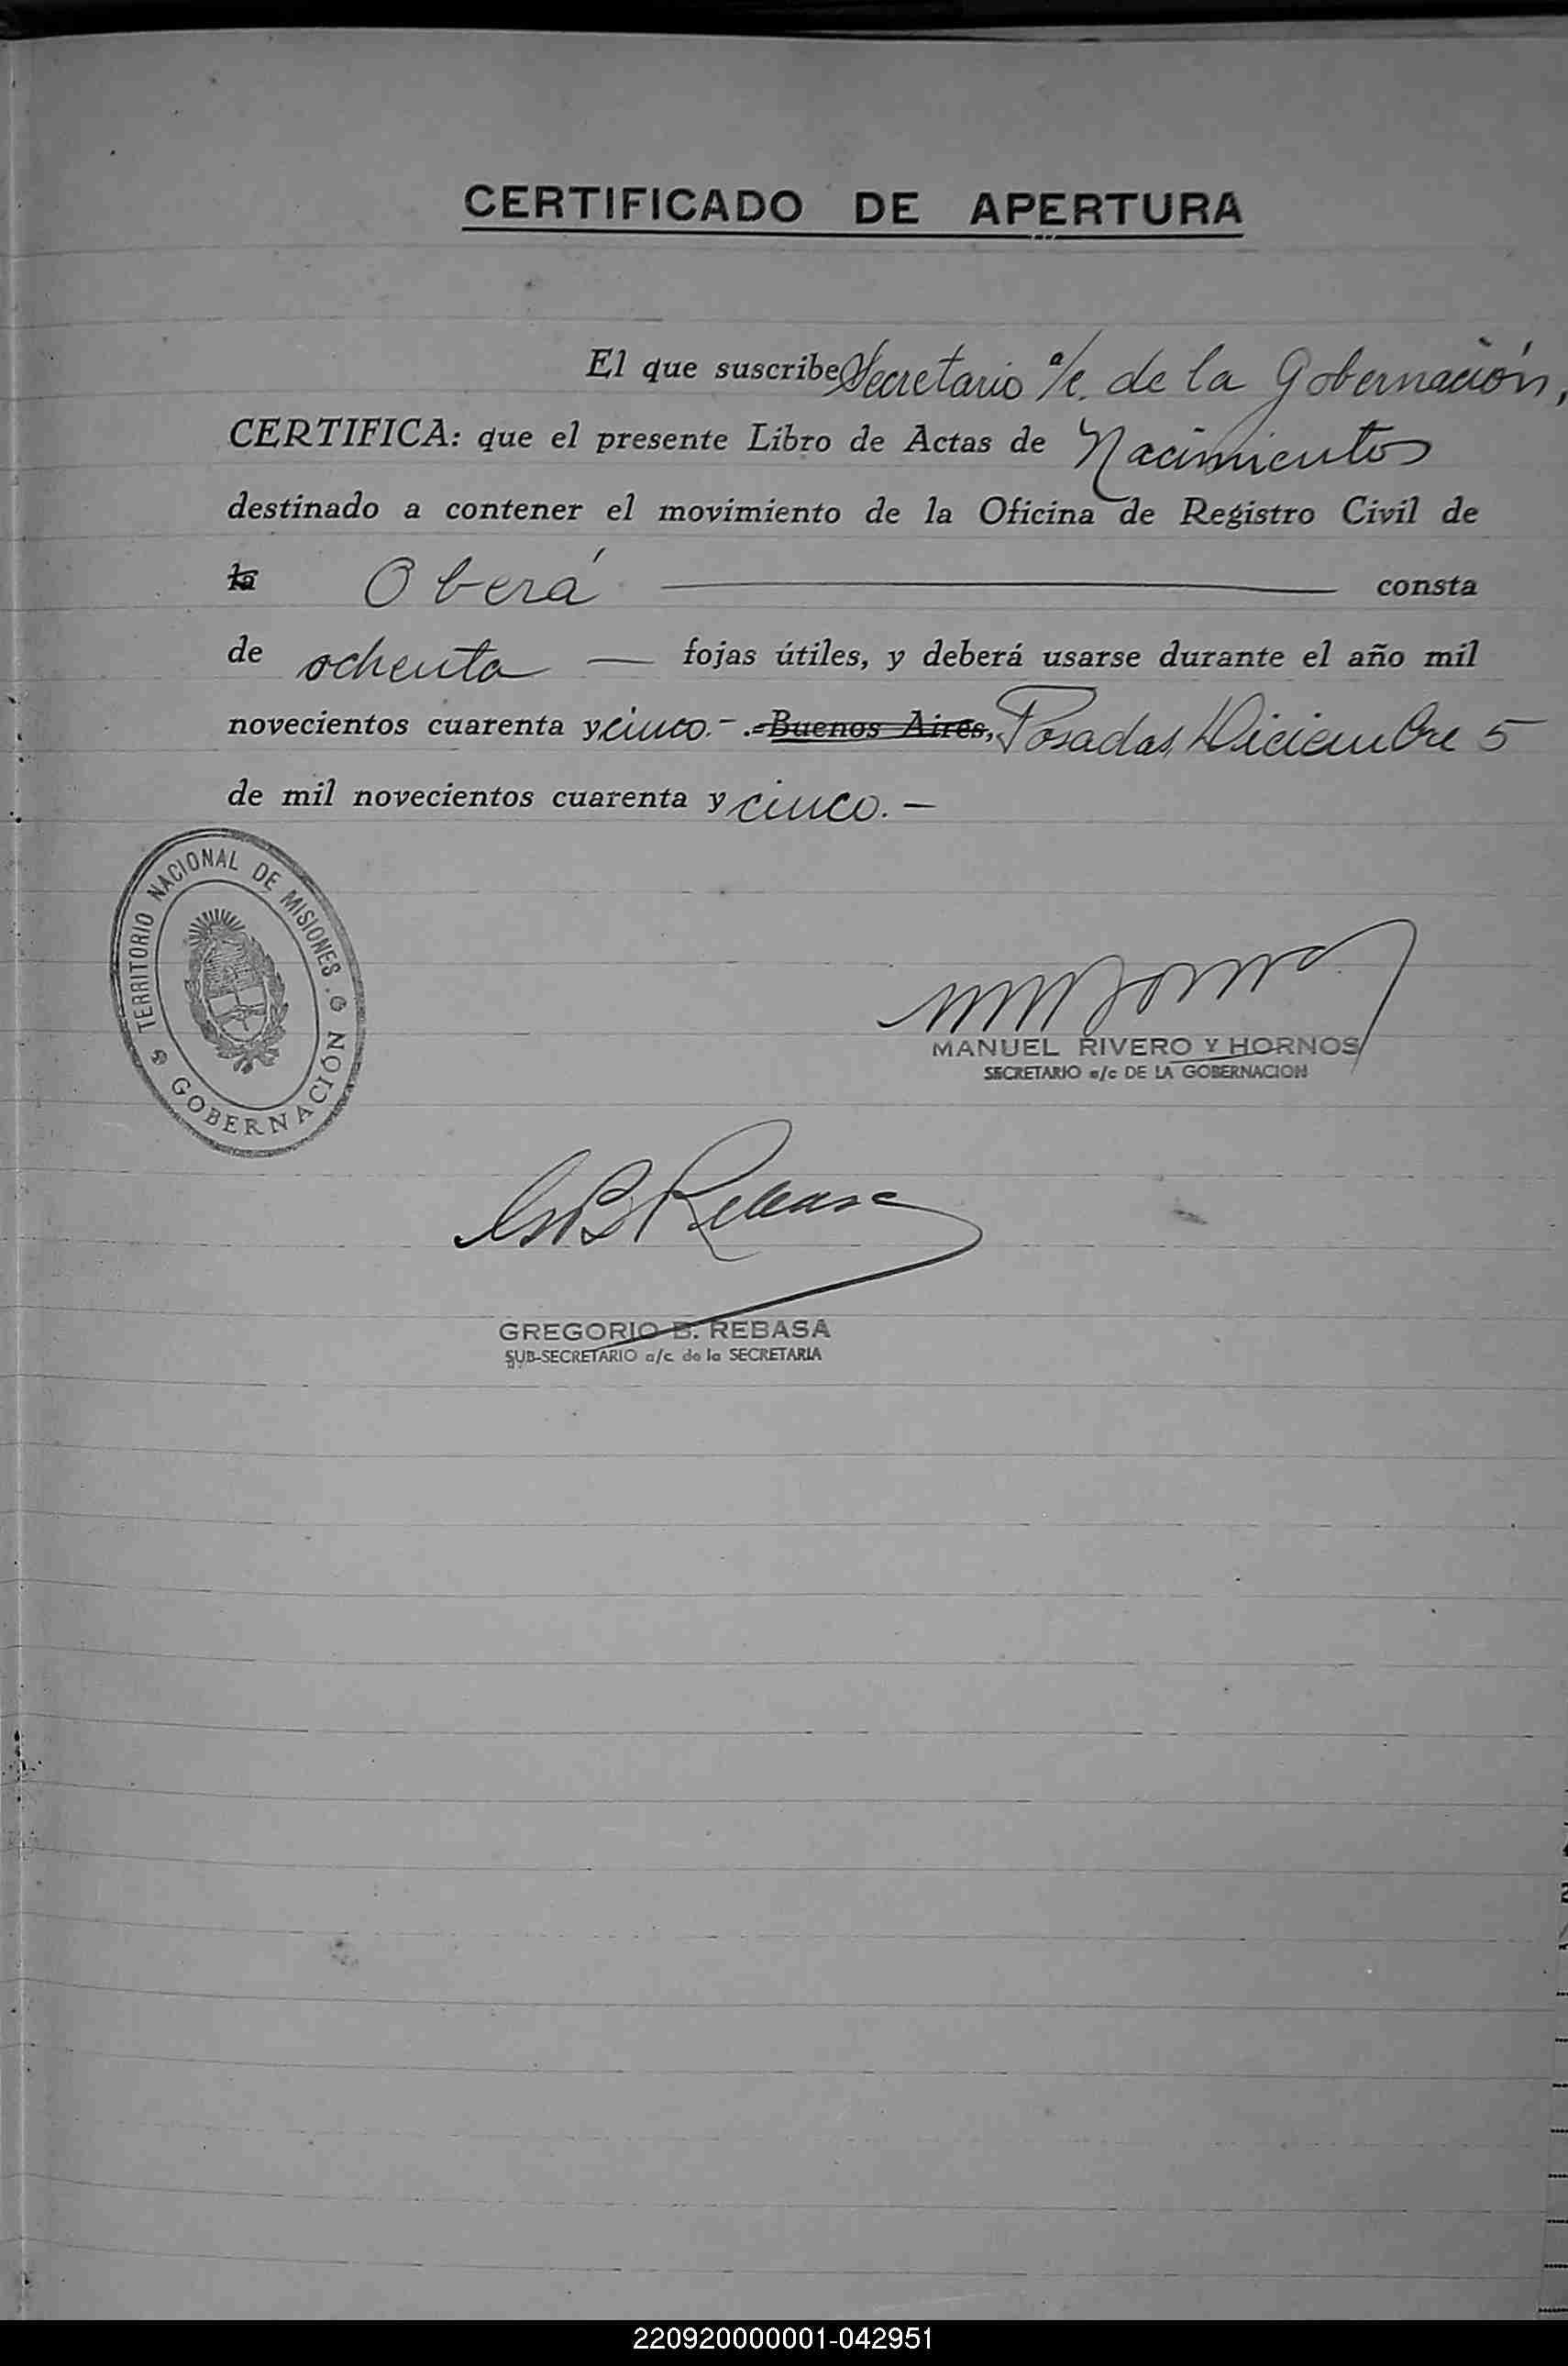 CERTIFICADO DE APERTURA
El que suscribe Secretario a/c. de la Gobernación,
CERTIFICA: que el presente Libro de Actas de Nacimientos
destinado a contener el movimiento de la Oficina de Registro Civil de
la Oberá consta
de ochenta — fojas útiles, y deberá usarse durante el año mil
novecientos cuarenta y cinco.- .-Buenos Aires, Posadas, Diciembre 5
de mil novecientos cuarenta y cinco.-
TERRITORIO NACIONAL DE MISIONES
GOBERNACIÓN
MANUEL RIVERO Y HORNOS
SECRETARIO a/c DE LA GOBERNACION
G B Rebasa
GREGORIO B. REBASA
SUB-SECRETARIO a/c de la SECRETARIA
220920000001-042951